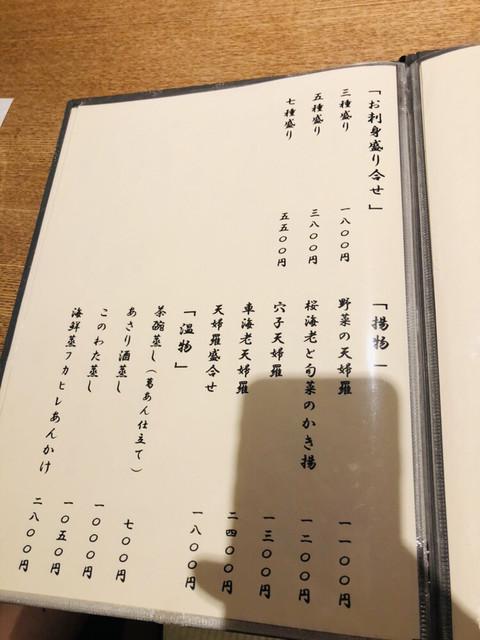 「お刺身盛り合せ」
三種盛り 一八〇〇円
五種盛り 三八〇〇円
七種盛り 五五〇〇円
「揚物」
野菜の天婦羅 一一〇〇円
桜海老と旬菜のかき揚 一二〇〇円
穴子天婦羅 一三〇〇円
車海老天婦羅 二四〇〇円
天婦羅盛合せ 一八〇〇円
「温物」
茶碗蒸し(葛あん仕立て) 七〇〇円
あさり酒蒸し 一〇〇〇円
このわた蒸し 一〇五〇円
海鮮蒸フカヒレあんかけ 二八〇〇円